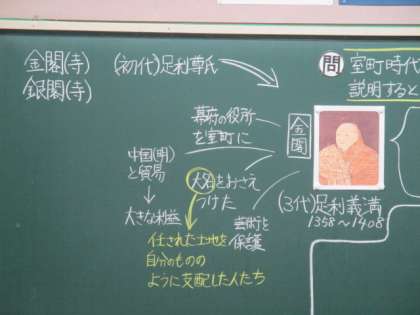 金閣(寺)
銀閣(寺)
(初代)足利尊氏
問 室町時代
説明すると
幕府の役所
を室町に
金閣
中国(明)
と貿易
大きな利益
大名をおさえ
つけた
任された土地を
自分のものの
ように支配した人たち
芸術を
保護
(3代)足利義満
1358～1408